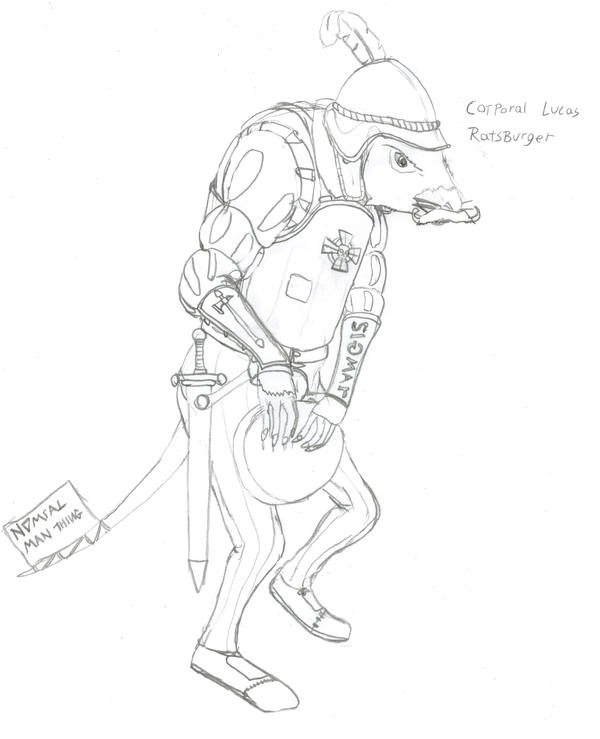 Corporal Lucas
RatsBurger
SIGMAR
NOMSAL
MAN THING